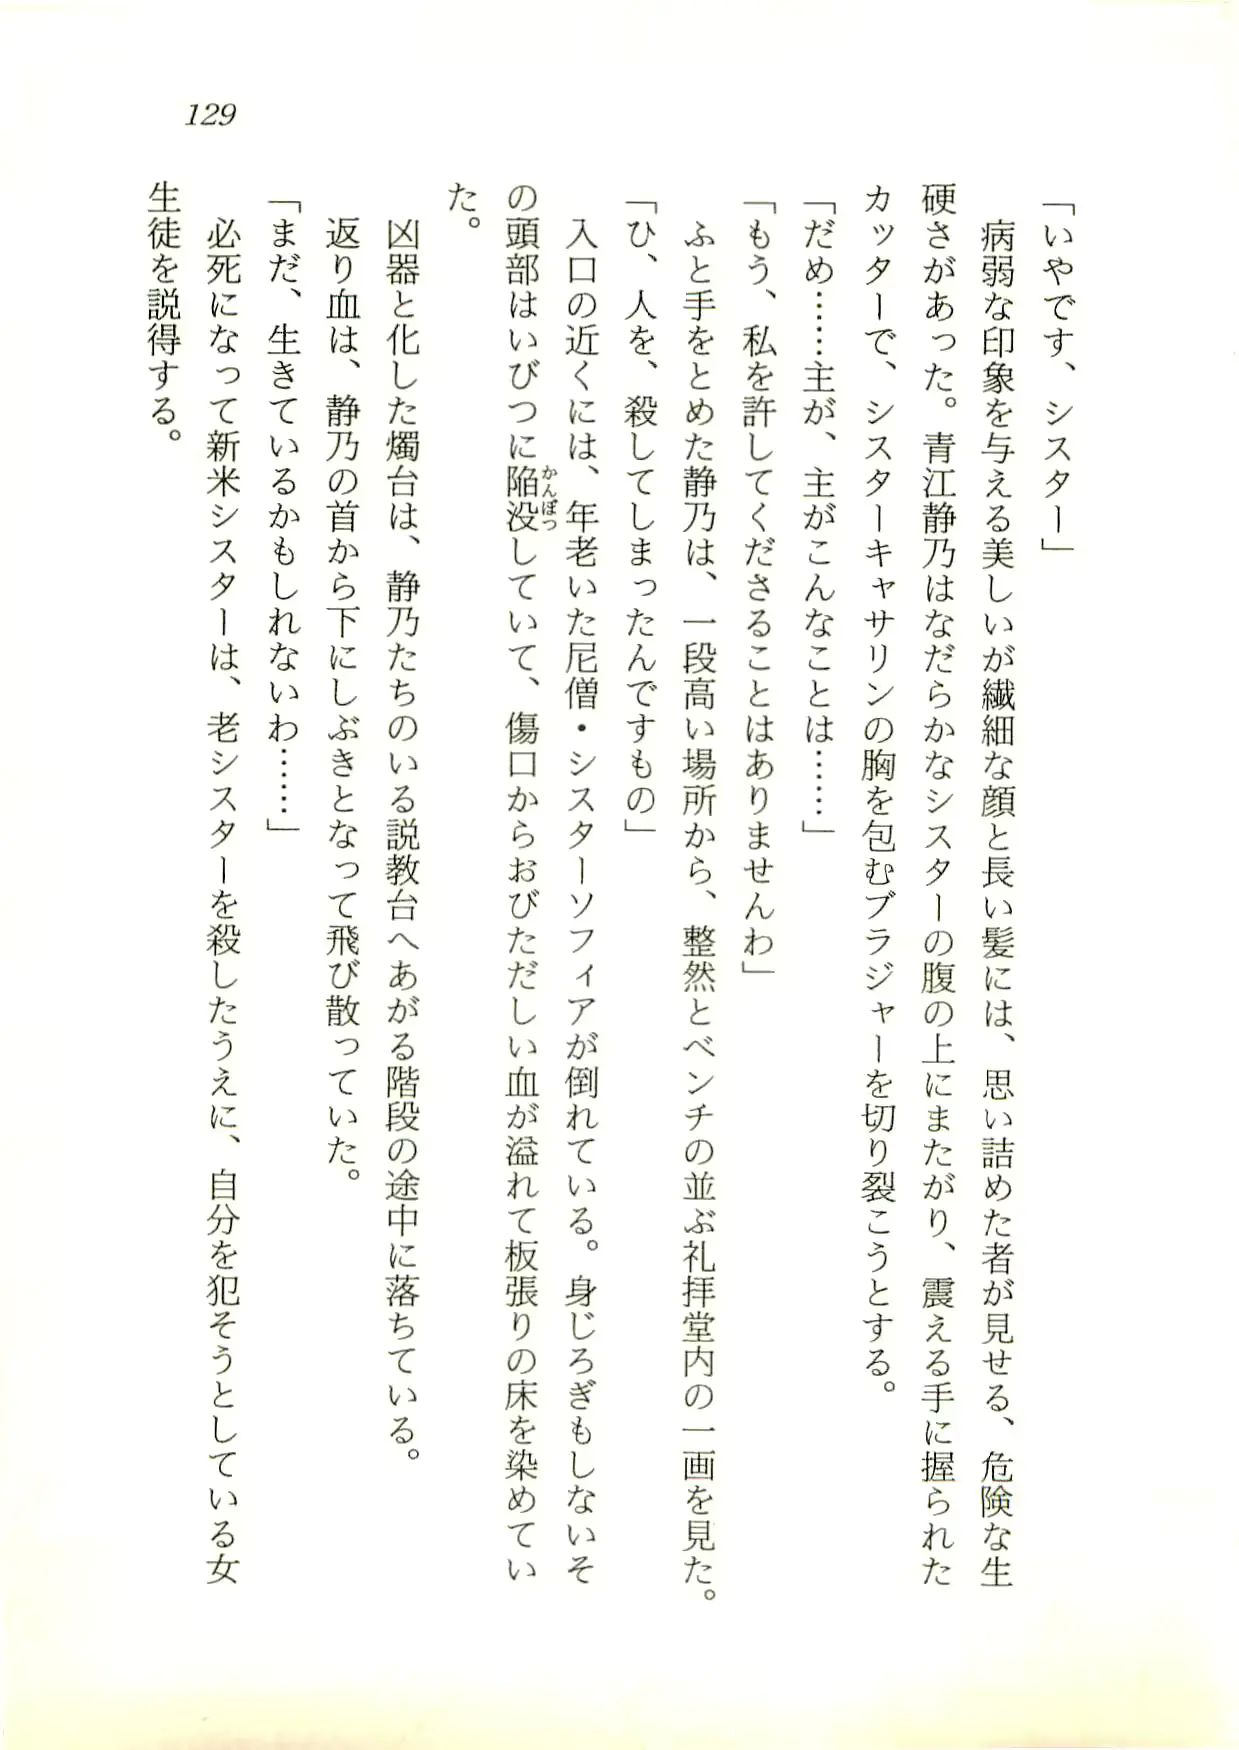 129
「いやです、シスター」
病弱な印象を与える美しいが繊細な顔と長い髪には、思い詰めた者が見せる、危険な生
硬さがあった。青江静乃はなだらかなシスターの腹の上にまたがり、震える手に握られた
カッターで、シスターキャサリンの胸を包むブラジャーを切り裂こうとする。
「だめ……主が、主がこんなことは……」
「もう、私を許してくださることはありませんわ」
ふと手をとめた静乃は、一段高い場所から、整然とベンチの並ぶ礼拝堂内の一画を見た。
「ひ、人を、殺してしまったんですもの」
入口の近くには、年老いた尼僧・シスターソフィアが倒れている。身じろぎもしないそ
の頭部はいびつに陥没かんぼつしていて、傷口からおびただしい血が溢れて板張りの床を染めてい
た。
凶器と化した燭台は、静乃たちのいる説教台へあがる階段の途中に落ちている。
返り血は、静乃の首から下にしぶきとなって飛び散っていた。
「まだ、生きているかもしれないわ……」
必死になって新米シスターは、老シスターを殺したうえに、自分を犯そうとしている女
生徒を説得する。